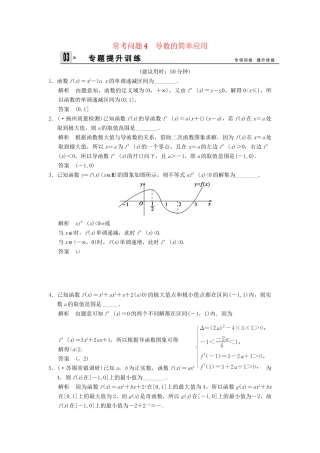 常考问题4 导数的简单应用
03
专题提升训练
(建议用时：50分钟)
1．函数f(x)＝x²－ln x的单调递减区间为________．
解析 由题意知，函数的定义域为(0，＋∞)，又由y′＝x－≤0，解得0<x≤1，所
以函数的单调递减区间为(0,1]．
答案 (0,1]
2．(·扬州质量检测)已知函数f(x)的导数f′(x)＝a(x＋1)(x－a)，若f(x)在x＝a处
取到极大值，则a的取值范围是________．
解析 根据函数极大值与导函数的关系，借助二次函数图象求解．因为f(x)在x＝a
处取到极大值，所以x＝a为f′(x)的一个零点，且在x＝a的左边f′(x)＞0，右边f′
(x)＜0，所以导函数f′(x)的开口向下，且a＞－1，即a的取值范围是(－1,0)．
答案 (－1,0)
3．已知函数y＝f(x)(x∈R)的图象如图所示，则不等式xf′(x)＜0的解集为________．
y
y=f(x)
－1
O
1
2
1
2
3
x
解析 xf′(x)＜0⇔或
当x∈时，f(x)单调递减，此时f′(x)＜0．
当x∈(－∞，0)时，f(x)单调递增，此时f′(x)＞0．
答案 ∪
4．已知函数f(x)＝x³＋ax²＋x＋2(a＞0)的极大值点和极小值点都在区间(－1,1)内，则实
数a的取值范围是________．
解析 由题意可知f′(x)＝0的两个不同解都在区间(－1,1)内．因为
f′(x)＝3x²＋2ax＋1，所以根据导函数图象可得
Δ=(2a)²－4×3×1>0,
－1<－2a/6<1,
f′(－1)=3－2a+1>0,
f′(1)=3+2a+1>0,
解得＜a＜2.
答案 (，2)
5．(·苏锡常镇调研)已知a，b为正实数，函数f(x)＝ax³
为
4，则f(x)在[－1,0]上的最小值为________．
解析 因为函数f(x)＝ax³＋bx＋2ˣ在[0,1]上的最大值为4，所以函数g(x)＝ax³＋bx
在[0,1]上的最大值为2，而g(x)是奇函数，所以g(x)在[－1,0]上的最小值为－2，故
f(x)在[－1,0]上的最小值为－2＋2⁻¹＝－.